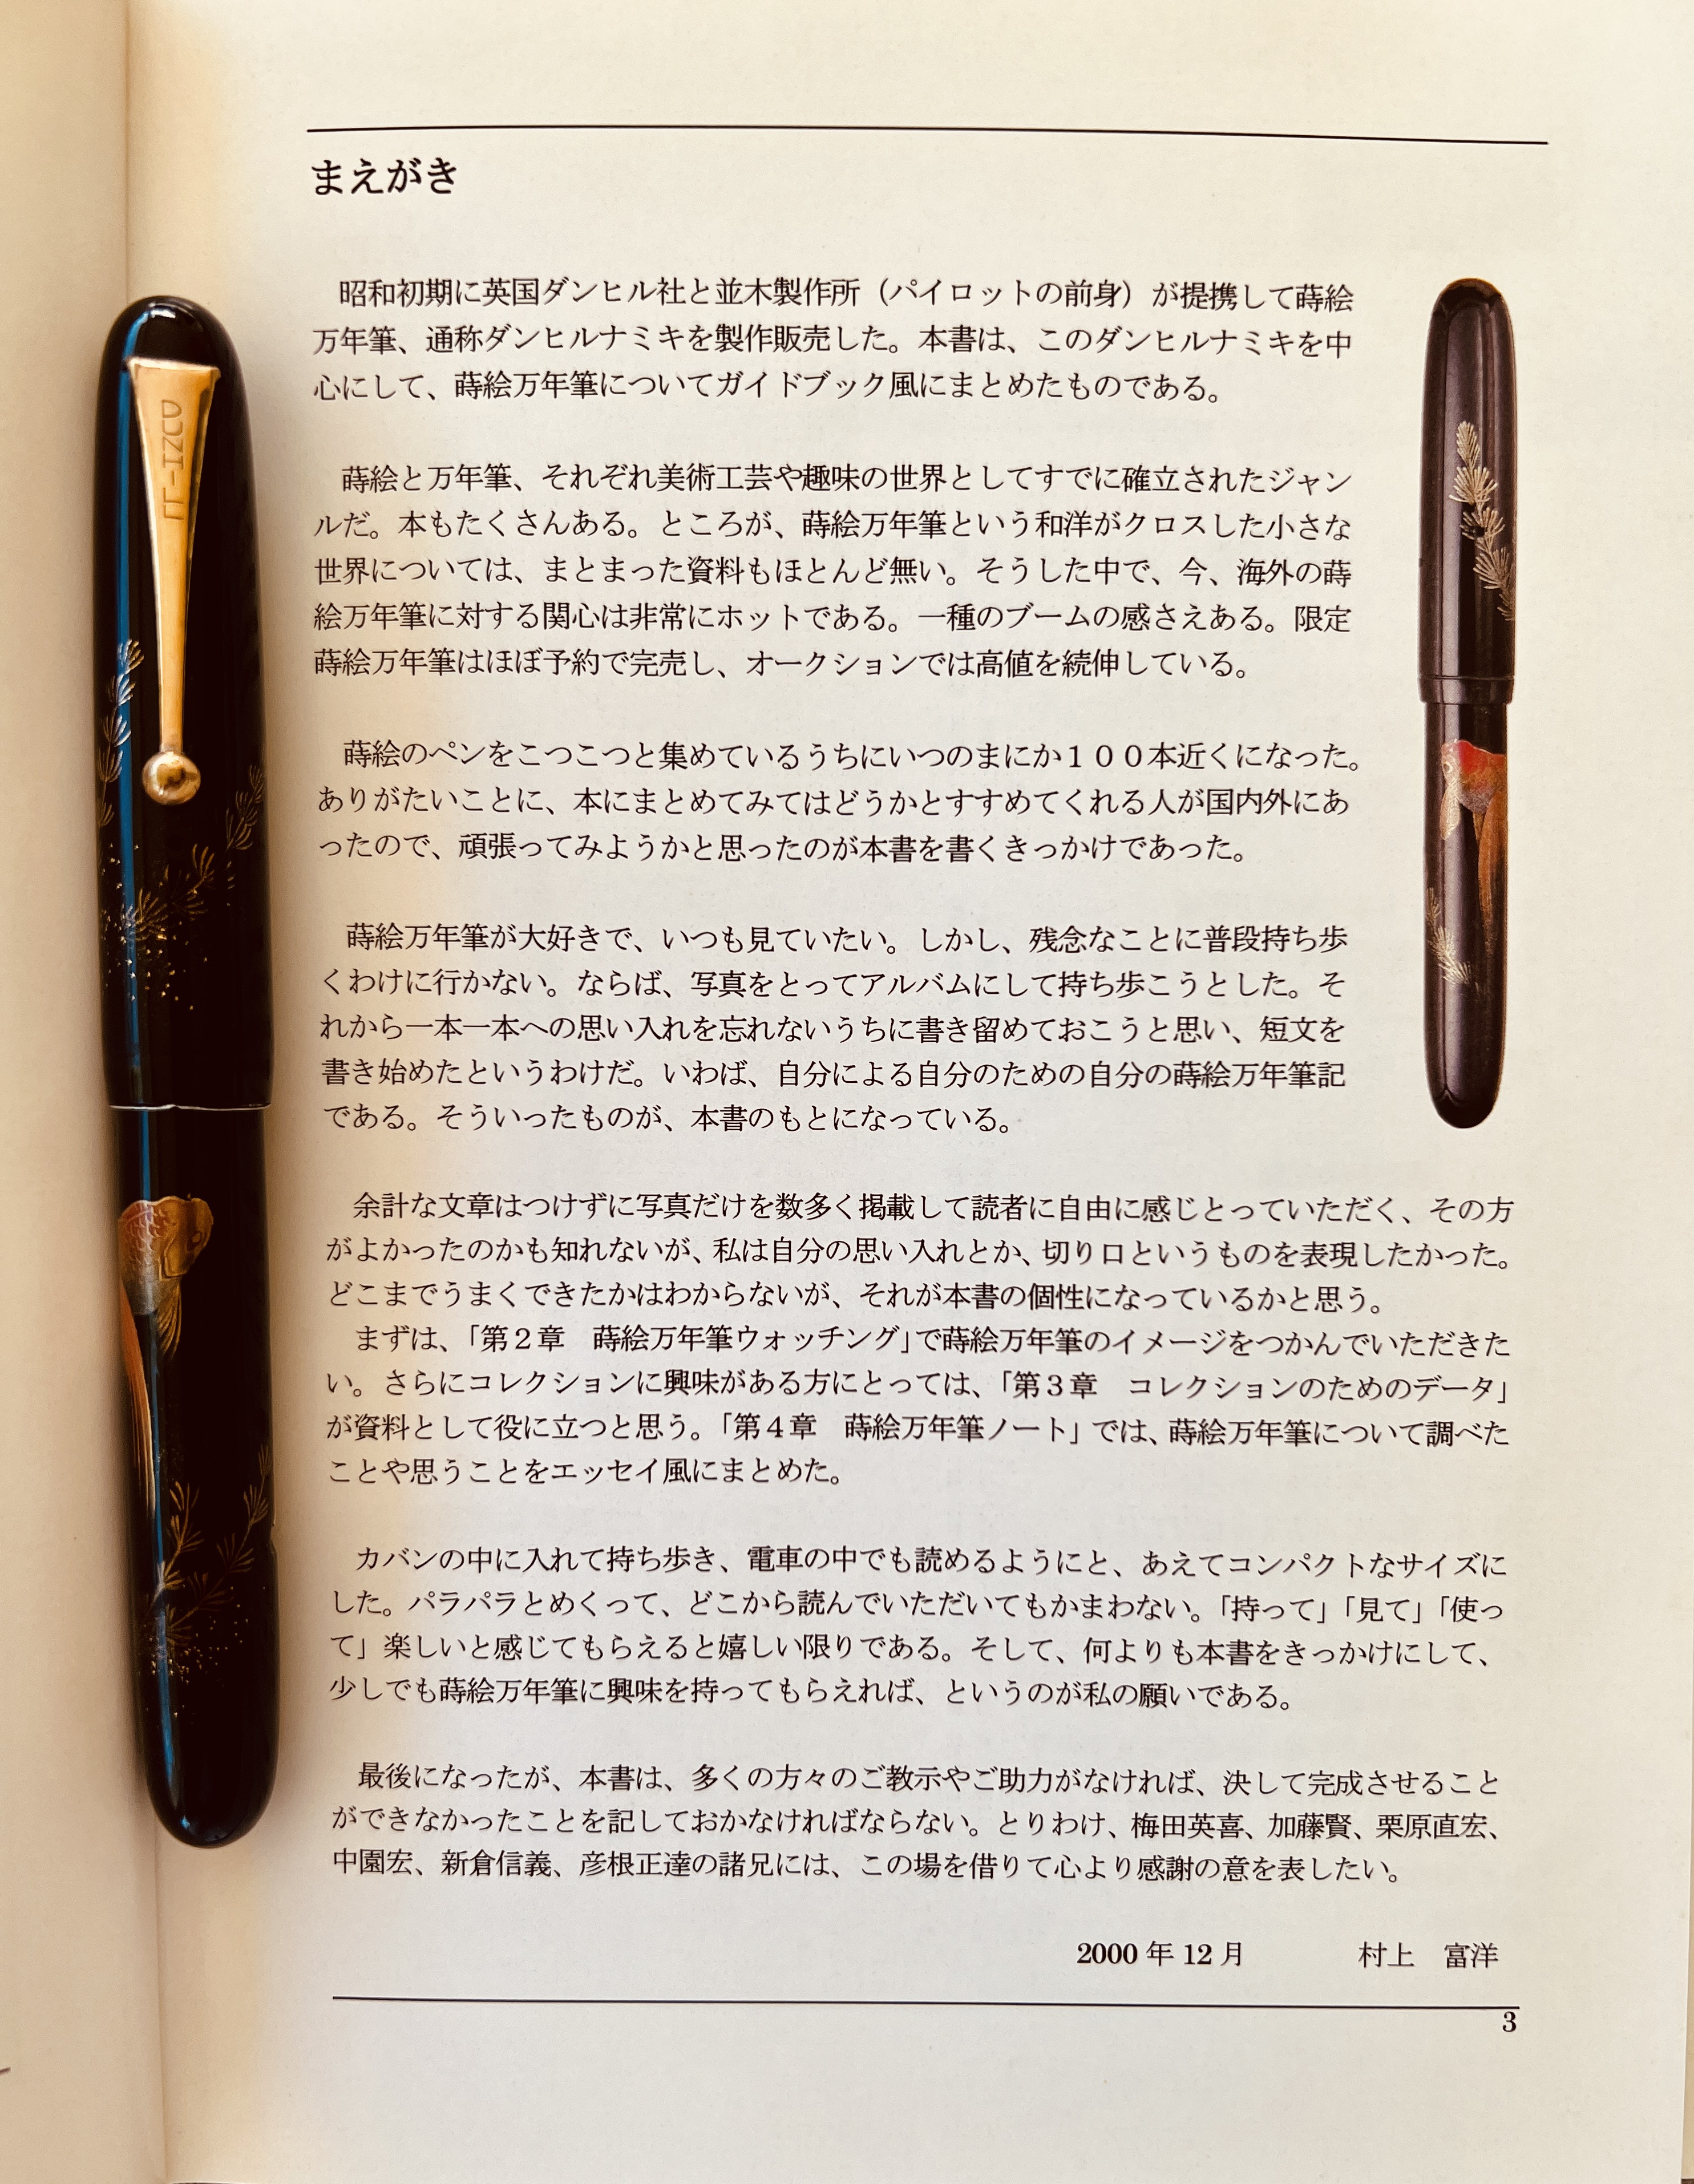 まえがき
昭和初期に英国ダンヒル社と並木製作所（パイロットの前身）が提携して蒔絵
万年筆、通称ダンヒルナミキを製作販売した。本書は、このダンヒルナミキを中
心にして、蒔絵万年筆についてガイドブック風にまとめたものである。
蒔絵と万年筆、それぞれ美術工芸や趣味の世界としてすでに確立されたジャン
ルだ。本もたくさんある。ところが、蒔絵万年筆という和洋がクロスした小さな
世界については、まとまった資料もほとんど無い。そうした中で、今、海外の蒔
絵万年筆に対する関心は非常にホットである。一種のブームの感さえある。限定
蒔絵万年筆はほぼ予約で完売し、オークションでは高値を続伸している。
蒔絵のペンをこつこつと集めているうちにいつのまにか１００本近くになった。
ありがたいことに、本にまとめてみてはどうかとすすめてくれる人が国内外にあ
ったので、頑張ってみようかと思ったのが本書を書くきっかけであった。
蒔絵万年筆が大好きで、いつも見ていたい。しかし、残念なことに普段持ち歩
くわけに行かない。ならば、写真をとってアルバムにして持ち歩こうとした。そ
れから一本一本への思い入れを忘れないうちに書き留めておこうと思い、短文を
書き始めたというわけだ。いわば、自分による自分のための自分の蒔絵万年筆記
である。そういったものが、本書のもとになっている。
余計な文章はつけずに写真だけを数多く掲載して読者に自由に感じとっていただく、その方
がよかったのかも知れないが、私は自分の思い入れとか、切り口というものを表現したかった。
どこまでうまくできたかはわからないが、それが本書の個性になっているかと思う。
まずは、「第２章　蒔絵万年筆ウォッチング」で蒔絵万年筆のイメージをつかんでいただきた
い。さらにコレクションに興味がある方にとっては、「第３章　コレクションのためのデータ」
が資料として役に立つと思う。「第４章　蒔絵万年筆ノート」では、蒔絵万年筆について調べた
ことや思うことをエッセイ風にまとめた。
カバンの中に入れて持ち歩き、電車の中でも読めるようにと、あえてコンパクトなサイズに
した。パラパラとめくって、どこから読んでいただいてもかまわない。「持って」「見て」「使っ
て」楽しいと感じてもらえると嬉しい限りである。そして、何よりも本書をきっかけにして、
少しでも蒔絵万年筆に興味を持ってもらえれば、というのが私の願いである。
最後になったが、本書は、多くの方々のご教示やご助力がなければ、決して完成させること
ができなかったことを記しておかなければならない。とりわけ、梅田英喜、加藤賢、栗原直宏、
中園宏、新倉信義、彦根正達の諸兄には、この場を借りて心より感謝の意を表したい。
2000 年 12 月　　　　村上　富洋
3